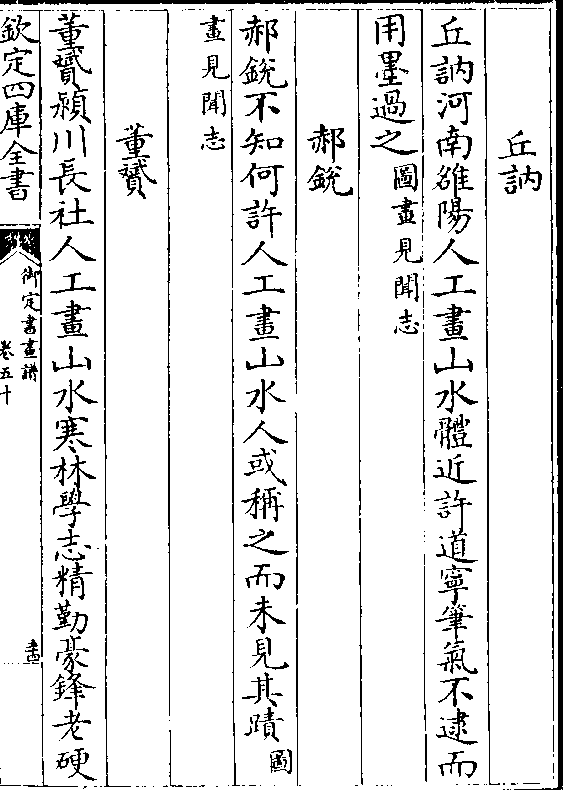 丘訥
丘訥河南雒陽人工畫山水體近許道寧筆氣不逮而
用墨過之圖畫見聞志
郝銳
郝銳不知何許人工畫山水人或稱之而未見其蹟圖
畫見聞志
董贇
董贇潁川長社人工畫山水寒林學志精勤豪鋒老硬
欽定四庫全書
御定書畫譜
卷五十
畫